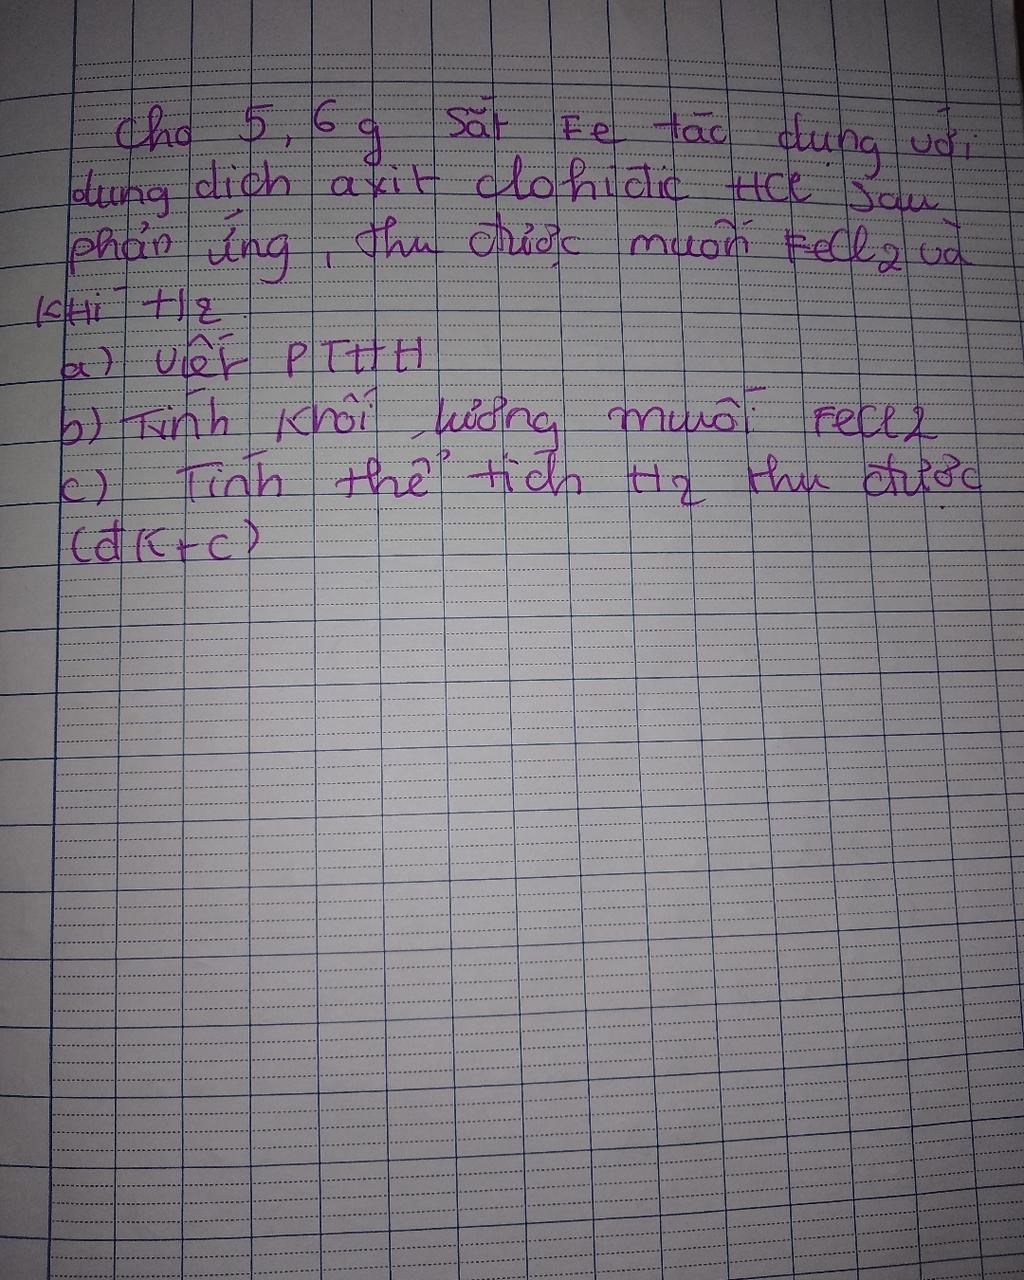 Cho 5,6 g sắt Fe tác dụng với
dung dịch axit clohiđic HCl sau
phản ứng, thu được muối FeCl2 và
Khí H2
a) Viết PTHH
b) Tính khối lượng muối FeCl2
c) Tính thể tích H2 thu được
(đktc)